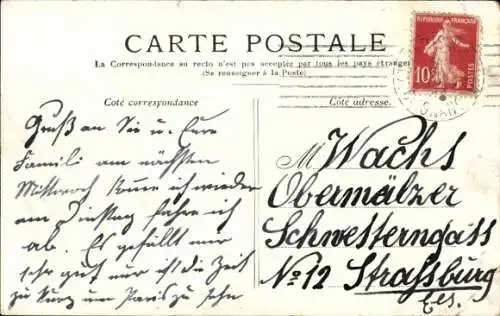 CARTE POSTALE
La Correspondance au recto n'est pas acceptée par tous les pays étrangers
(Se renseigner à la Poste)
Côté correspondance
Côté adresse.
REPUBLIQUE FRANÇAISE
10
POSTES
Gruß an Sie u. Eure
Famili am nächsten
Mittwoch komme ich wieder
am Dienstag fahre ich
ab. Es gefällt mir
sehr gut nur ist die Zeit
zu kurz um Paris zu sehn
M Wachs
Obermälzer
Schwesterngass
No 12 Straßburg
Els.